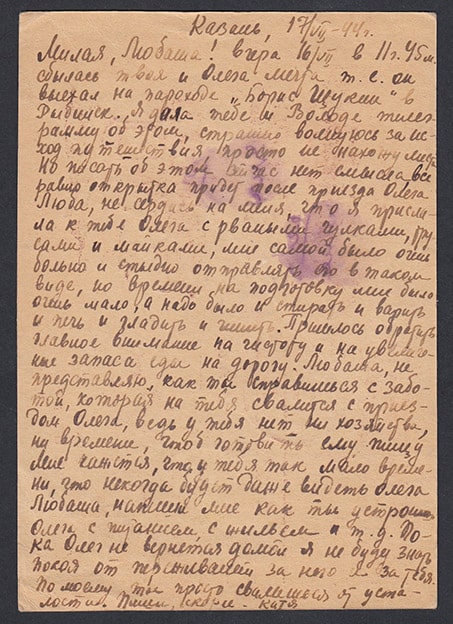 Казань, 17/VII-44г.
Милая, Любаша! Вчера 16/VII в 11 г. 45 м.
сбылась твоя и Олега мечта т. е. он
выехал на пароходе „Борис Щукин" в
Рыбинск. Я дала тебе и Володе телег
рамму об этом, страшно волнуюсь за ис-
ход путешествия просто не нахожу места
Но писать об этом сейчас нет смысла все
равно открытка придет после приезда Олега
Люба, не сердись на меня, что я присла-
ла к тебе Олега с рваными чулками, тру
сами и майками, мне самой было очень
больно и стыдно отправлять его в таком
виде, но времени на подготовку мне было
очень мало, а надо было и стирать и варить
и печь и гладить и шить. Пришлось обратить
главное внимание на чистоту и на увеличе-
ние запаса еды на дорогу. Любаша, не
представляю, как ты справишься с забо-
той, которая на тебя свалится с приез-
дом Олега, ведь у тебя нет ни хозяйства,
ни времени, чтоб готовить ему пищу
Мне кажется, что у тебя так мало време-
ни, что некогда будет даже видеть Олега
Любаша, напиши мне как ты устроишь
Олега с питанием с жильем и т. д. По-
ка Олег не вернется домой я не буду знать
покоя от переживаний за него и за тебя.
По моему ты просто свалишься от уста-
лости. Пиши, скорей. Катя